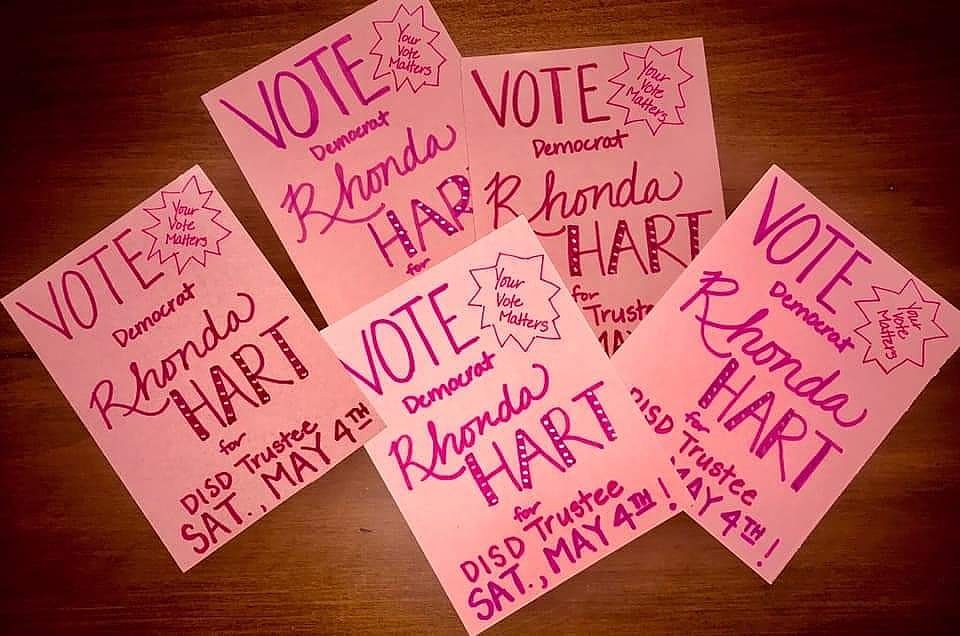 VOTE
Your
Vote
Matters
Democrat
Rhonda
HAR
for
VOTE
Your
Vote
Matters
Democrat
Rhonda
HART
for
Trust
MAY
VOTE
Your
Vote
Matters
Democrat
Rhonda
HART
for
DISD Trustee
SAT., MAY 4TH
VOTE
Your
Vote
Matters
Democrat
Rhonda
HART
for
DISD Trustee
SAT., MAY 4TH!
VOTE
Democrat
Your
Vote
Matters
Rhonda
HART
for
DISD Trustee
MAY 4TH!